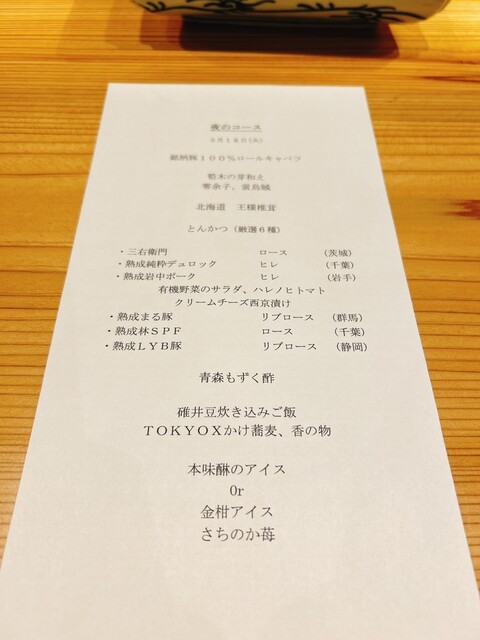 夜のコース
3月18日(火)
銘柄豚100%ロールキャベツ
筍木の芽和え
零余子、蛍烏賊
北海道 王様椎茸
とんかつ (厳選6種)
・三右衛門 ロース (茨城)
・熟成純粋デュロック ヒレ (千葉)
・熟成岩中ポーク ヒレ (岩手)
有機野菜のサラダ、ハレノヒトマト
クリームチーズ西京漬け
・熟成まる豚 リブロース (群馬)
・熟成林SPF ロース (千葉)
・熟成LYB豚 リブロース (静岡)
青森もずく酢
碓井豆炊き込みご飯
TOKYOXかけ蕎麦、香の物
本味醂のアイス
Or
金柑アイス
さちのか苺